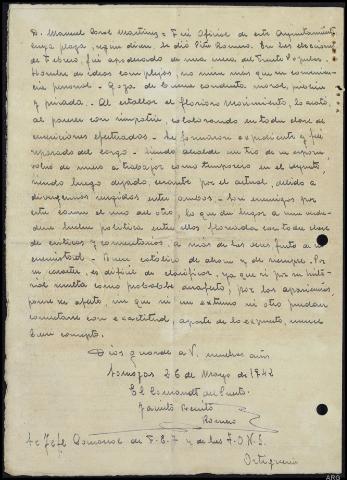 D. Manuel Martínez = Fué Oficial de este Ayuntamiento
cuya plaza, según dicen, le dió Pita Romero. En las elecciones
de Febrero, fué apoderado de una mesa del Frente Popular.
Hombre de ideas complejas, no mira más que su convenien-
cia personal. Goza de buena conducta moral, pública
y privada. Al estallar el Glorioso Movimiento, lo acató,
al parecer con simpatía, colaborando en toda clase de
suscripciones efectuadas. Se le formaron expediente y fué
separado del cargo. Siendo alcalde un tío de su esposa
volvió de nuevo a trabajar como temporero en el
siendo luego dejado cesante por el actual, debido a
divergencias surgidas entre ambos. Son enemigos por
esta causa el uno del otro, lo que da lugar a una
política entre ellos con toda clase
de críticas y comentarios, a más de las
enemistad. Buen católico de ahora y de siempre. Por
su carácter, es difícil de clasificar, ya que si por su histo-
rial resulta como probable desafecto, por las apariencias,
parece ser afecto, sin que ni un extremo ni otro puedan
constatarse con exactitud, aparte de lo expuesto, merece
buen concepto.
Dios guarde a V. muchos años
Somozas 26 de Mayo de 1942
El Comandte del Puesto
Benito
Romero
Sr Jefe Comarcal de F.E.T. y de las J.O.N.S.
Ortigueira
ARG